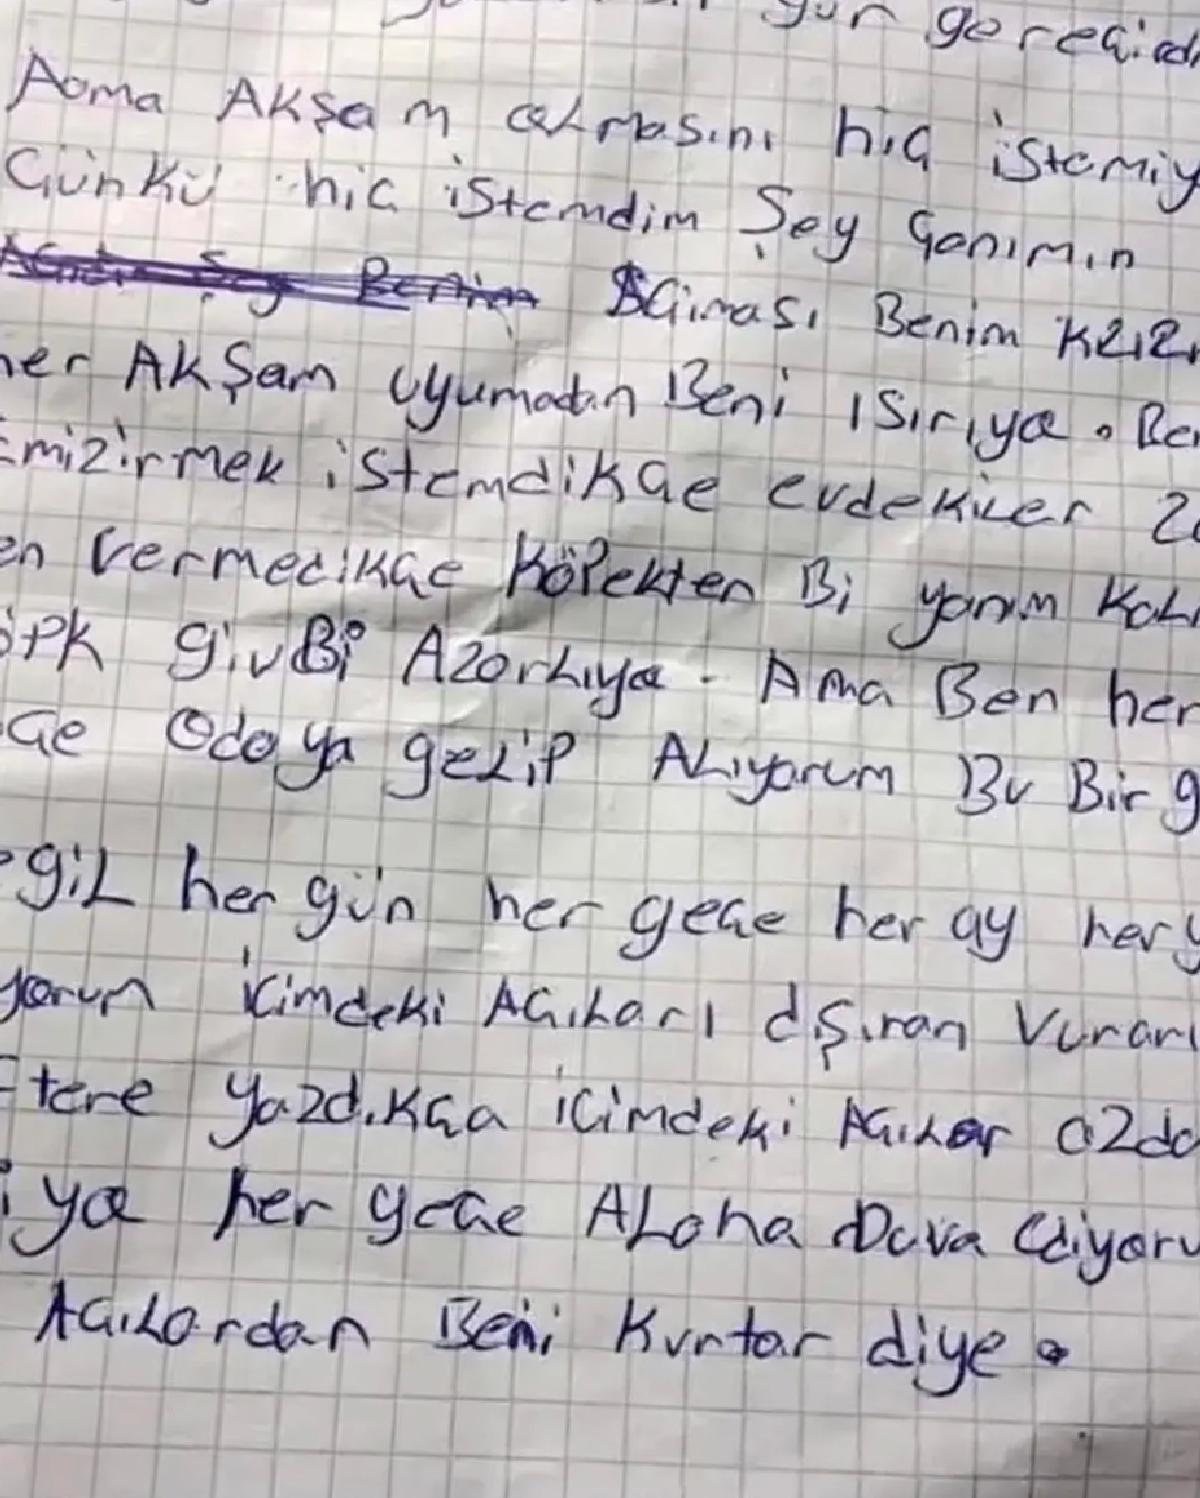 gün göreçidi
Aoma AKşam olmasını hiç istemiy
Günkü hiç istemdim Şey Canımın
Acıdı Şey Benim Açıması Benim kızı
her AKŞam uyumadan Beni ısırıya. Ben
Emizirmek istemdikçe evdekiler
en vermecikçe Köpekten Bi yanım Kalı
öpk givBi Azarlıya. Ama Ben her
çe Odaya gelip Alıyorum Bu Bir g
egil her gün her gece her ay her y
yorum içimdeki Acıları dşıran Vurarı
ftere yazdıkça içimdeki Acılar azda
iya her gece Aloha Duva Ediyoru
Acılardan Beni Kurtar diye.